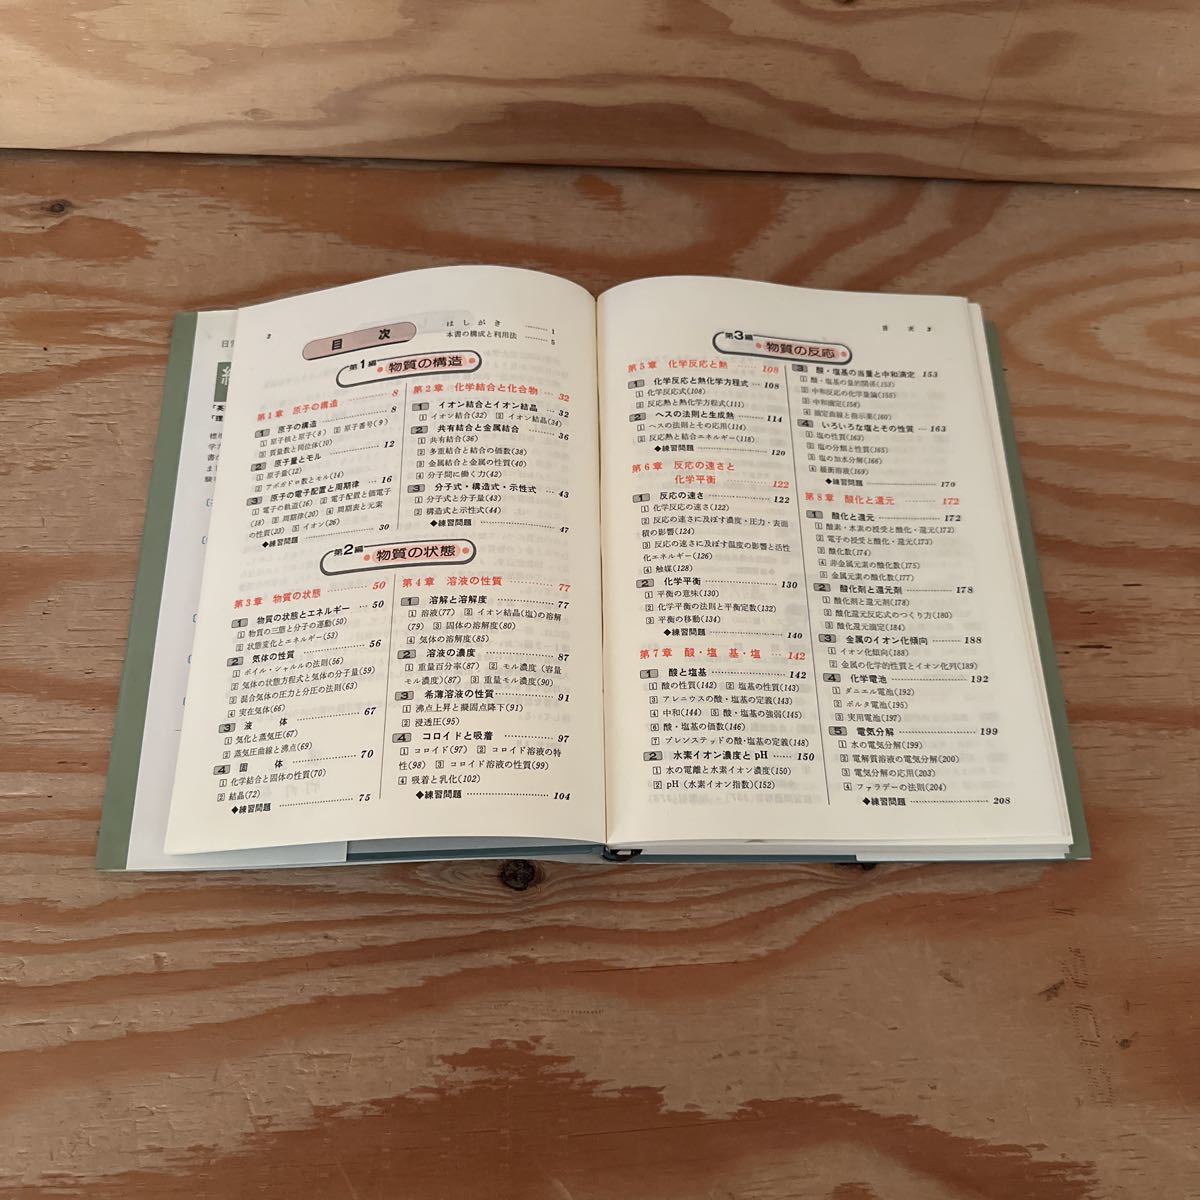 2
目次
はしがき………1
本書の構成と利用法……5
第1編 物質の構造
第1章 原子の構造………8
1 原子の構造………8
1 原子核と原子(8) 2 原子番号(9)
3 質量数と同位体(10)
2 原子量とモル………12
1 原子量(12)
2 アボガドロ数とモル(14)
3 原子の電子配置と周期律……16
1 電子の軌道(16) 2 電子配置と価電子
(18) 3 周期律(20) 4 周期表と元素
の性質(23) 5 イオン(26)
◆練習問題………30
第2章 化学結合と化合物……32
1 イオン結合とイオン結晶……32
1 イオン結合(32) 2 イオン結晶(34)
2 共有結合と金属結合………36
1 共有結合(36)
2 多重結合と結合の価数(38)
3 金属結合と金属の性質(40)
4 分子間に働く力(42)
3 分子式・構造式・示性式……43
1 分子式と分子量(43)
2 構造式と示性式(44)
◆練習問題………47
第2編 物質の状態
第3章 物質の状態………50
1 物質の状態とエネルギー……50
1 物質の三態と分子の運動(50)
2 状態変化とエネルギー(53)
2 気体の性質………56
1 ボイル・シャルルの法則(56)
2 気体の状態方程式と気体の分子量(59)
3 混合気体の圧力と分圧の法則(63)
4 実在気体(66)
3 液体………67
1 気化と蒸気圧(67)
2 蒸気圧曲線と沸点(69)
4 固体………70
1 化学結合と固体の性質(70)
2 結晶(72)
◆練習問題………75
第4章 溶液の性質………77
1 溶解と溶解度………77
1 溶液(77) 2 イオン結晶(塩)の溶解
(79) 3 固体の溶解度(80)
4 気体の溶解度(85)
2 溶液の濃度………87
1 重量百分率(87) 2 モル濃度(容量
モル濃度)(87) 3 重量モル濃度(90)
3 希薄溶液の性質………91
1 沸点上昇と凝固点降下(91)
2 浸透圧(95)
4 コロイドと吸着………97
1 コロイド(97) 2 コロイド溶液の特
性(98) 3 コロイド溶液の性質(99)
4 吸着と乳化(102)
◆練習問題………104
目次 3
第3編 物質の反応
第5章 化学反応と熱………108
1 化学反応と熱化学方程式……108
1 化学反応式(108)
2 反応熱と熱化学方程式(111)
2 ヘスの法則と生成熱………114
1 ヘスの法則とその応用(114)
2 反応熱と結合エネルギー(118)
◆練習問題………120
第6章 反応の速さと
化学平衡………122
1 反応の速さ………122
1 化学反応の速さ(122)
2 反応の速さに及ぼす濃度・圧力・表面
積の影響(124)
3 反応の速さに及ぼす温度の影響と活性
化エネルギー(126)
4 触媒(128)
2 化学平衡………130
1 平衡の意味(130)
2 化学平衡の法則と平衡定数(132)
3 平衡の移動(134)
◆練習問題………140
第7章 酸・塩基・塩………142
1 酸と塩基………142
1 酸の性質(142) 2 塩基の性質(143)
3 アレニウスの酸・塩基の定義(143)
4 中和(144) 5 酸・塩基の強弱(145)
6 酸・塩基の価数(146)
7 ブレンステッドの酸・塩基の定義(148)
2 水素イオン濃度とpH……150
1 水の電離と水素イオン濃度(150)
2 pH(水素イオン指数)(152)
3 酸・塩基の当量と中和滴定 153
1 酸・塩基の量的関係(153)
2 中和反応の化学量論(155)
3 中和滴定(158)
4 滴定曲線と指示薬(160)
4 いろいろな塩とその性質……163
1 塩の性質(163)
2 塩の分類と性質(165)
3 塩の加水分解(166)
4 緩衝溶液(169)
◆練習問題………170
第8章 酸化と還元………172
1 酸化と還元………172
1 酸素・水素の授受と酸化・還元(172)
2 電子の授受と酸化・還元(173)
3 酸化数(174)
4 非金属元素の酸化数(175)
5 金属元素の酸化数(177)
2 酸化剤と還元剤………178
1 酸化剤と還元剤(178)
2 酸化還元反応式のつくり方(180)
3 酸化還元滴定(184)
3 金属のイオン化傾向………188
1 イオン化傾向(188)
2 金属の化学的性質とイオン化列(189)
4 化学電池………192
1 ダニエル電池(192)
2 ボルタ電池(195)
3 実用電池(197)
5 電気分解………199
1 水の電気分解(199)
2 電解質溶液の電気分解(200)
3 電気分解の応用(203)
4 ファラデーの法則(204)
◆練習問題………208